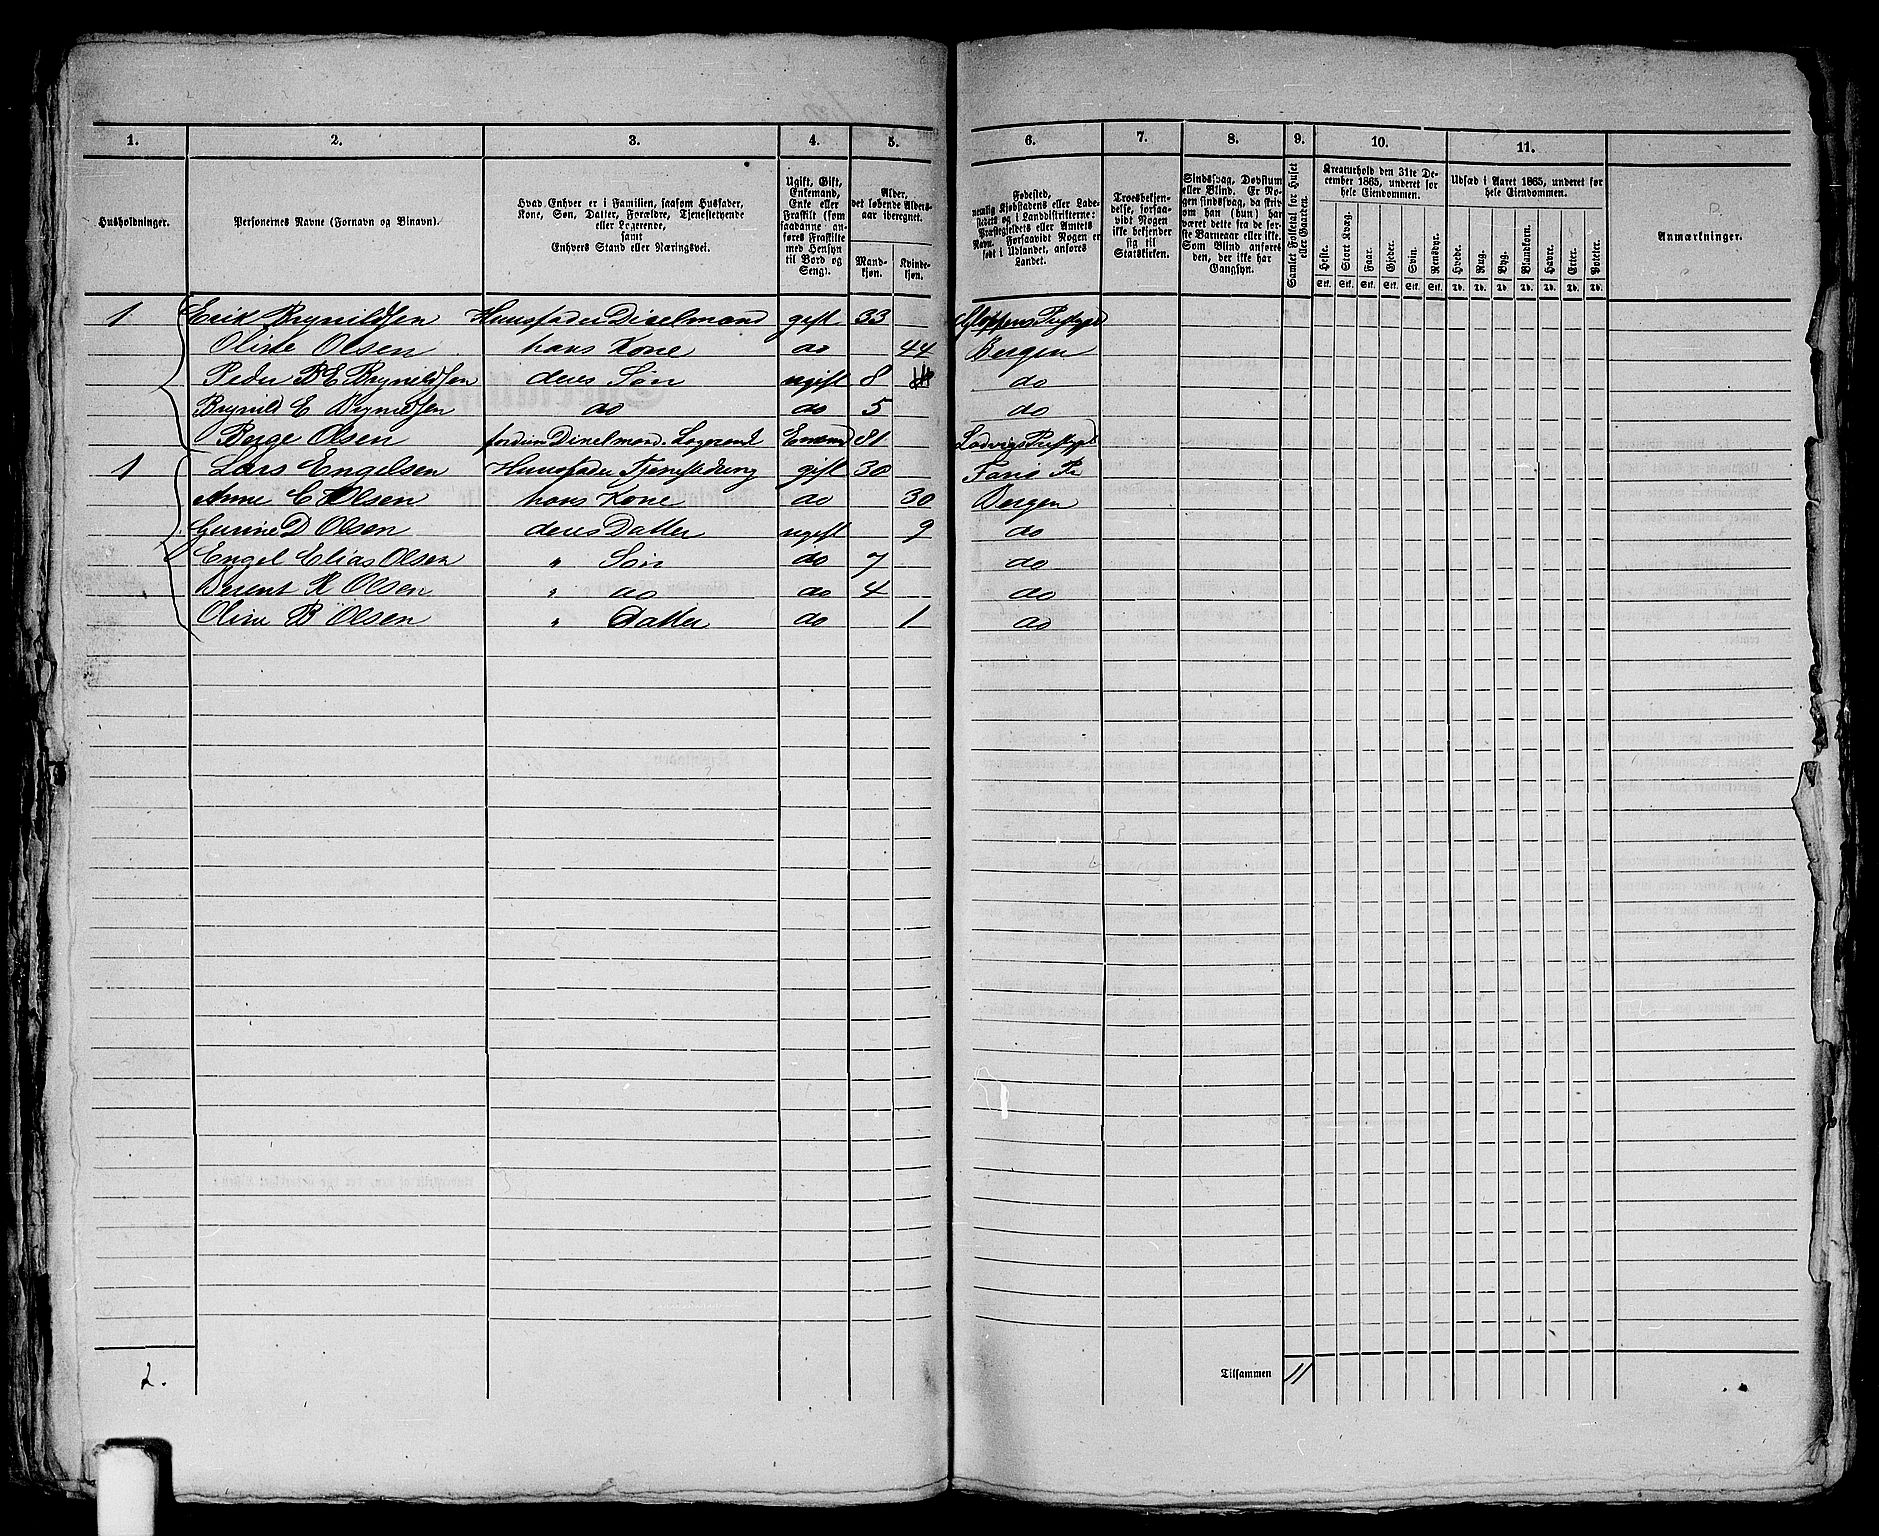 1. 2. 3. 4. 5. 6. 7. 8. 9. 10. 11.
Husholdninger.
Personernes Navne (Fornavn og Binavn).
Hvad Enhver er i Familien, saasom Husfader,
Kone, Søn, Datter, Forældre, Tjenestetyende
eller Logerende,
samt
Enhvers Stand eller Næringsvei.
Ugift, Gift,
Enkemand,
Enke eller
Fraskilt (som
saadanne anføres
Fraskilte
med Hensyn
til Bord og
Seng).
Alder,
det løbende Alders-
aar iberegnet.
Mand-
kjøn.
Kvinde-
kjøn.
Fødested,
nemlig Kjøbstadens eller Lade-
stedets og i Landdistrikterne:
Præstegjeldets eller Amtets
Navn. Forsaavidt Nogen er
født i Udlandet, anføres
Landet.
Troesbekjen-
delse, forsaa-
vidt Nogen
ikke bekjender
sig til
Statskirken.
Sindssvag, Døvstum
eller Blind. Er No-
gen sindssvag, da skriv
om han (hun) har
været dette fra de før-
ste Barneaar eller ikke.
Som Blind anføres
den, der ikke har
Gangsyn.
Samlet Folketal for Huset
eller Gaarden.
Kreaturhold den 31te De-
cember 1865, underet for
hele Eiendommen.
Heste. Stort Kvæg. Faar. Gjeder. Svin. Rensdyr.
Stk. Stk. Stk. Stk. Stk. Stk.
Udsæd i Aaret 1865, underet for
hele Eiendommen.
Hvede. Rug. Byg. Blandkorn. Havre. Erter. Poteter.
Td. Td. Td. Td. Td. Td. Td.
Anmærkninger.
1 Erik Brynildsen Huusfader Dixelmand gift 33 Gloppens Prstgd
Oliste Olsen hans Kone do 44 Bergen
Peder B E Bryneldsen deres Søn ugift 8 do
Brynild E Brynildsen do do 5 do
Børge Olsen forduen Dixelmand. Logerende Enkmd 81 Ladvigs Prstgd
1 Lars Engelsen Huusfader 30 gift
Anne C Olsen hans Kone do 30 Bergen
Gurine D Olsen deres Datter ugift 9 do
Engel Elias Olsen " Søn do 7 do
Berent K Olsen " do do 4 do
Oline B Olsen " Datter do 1 do
2.
Tilsammen 11